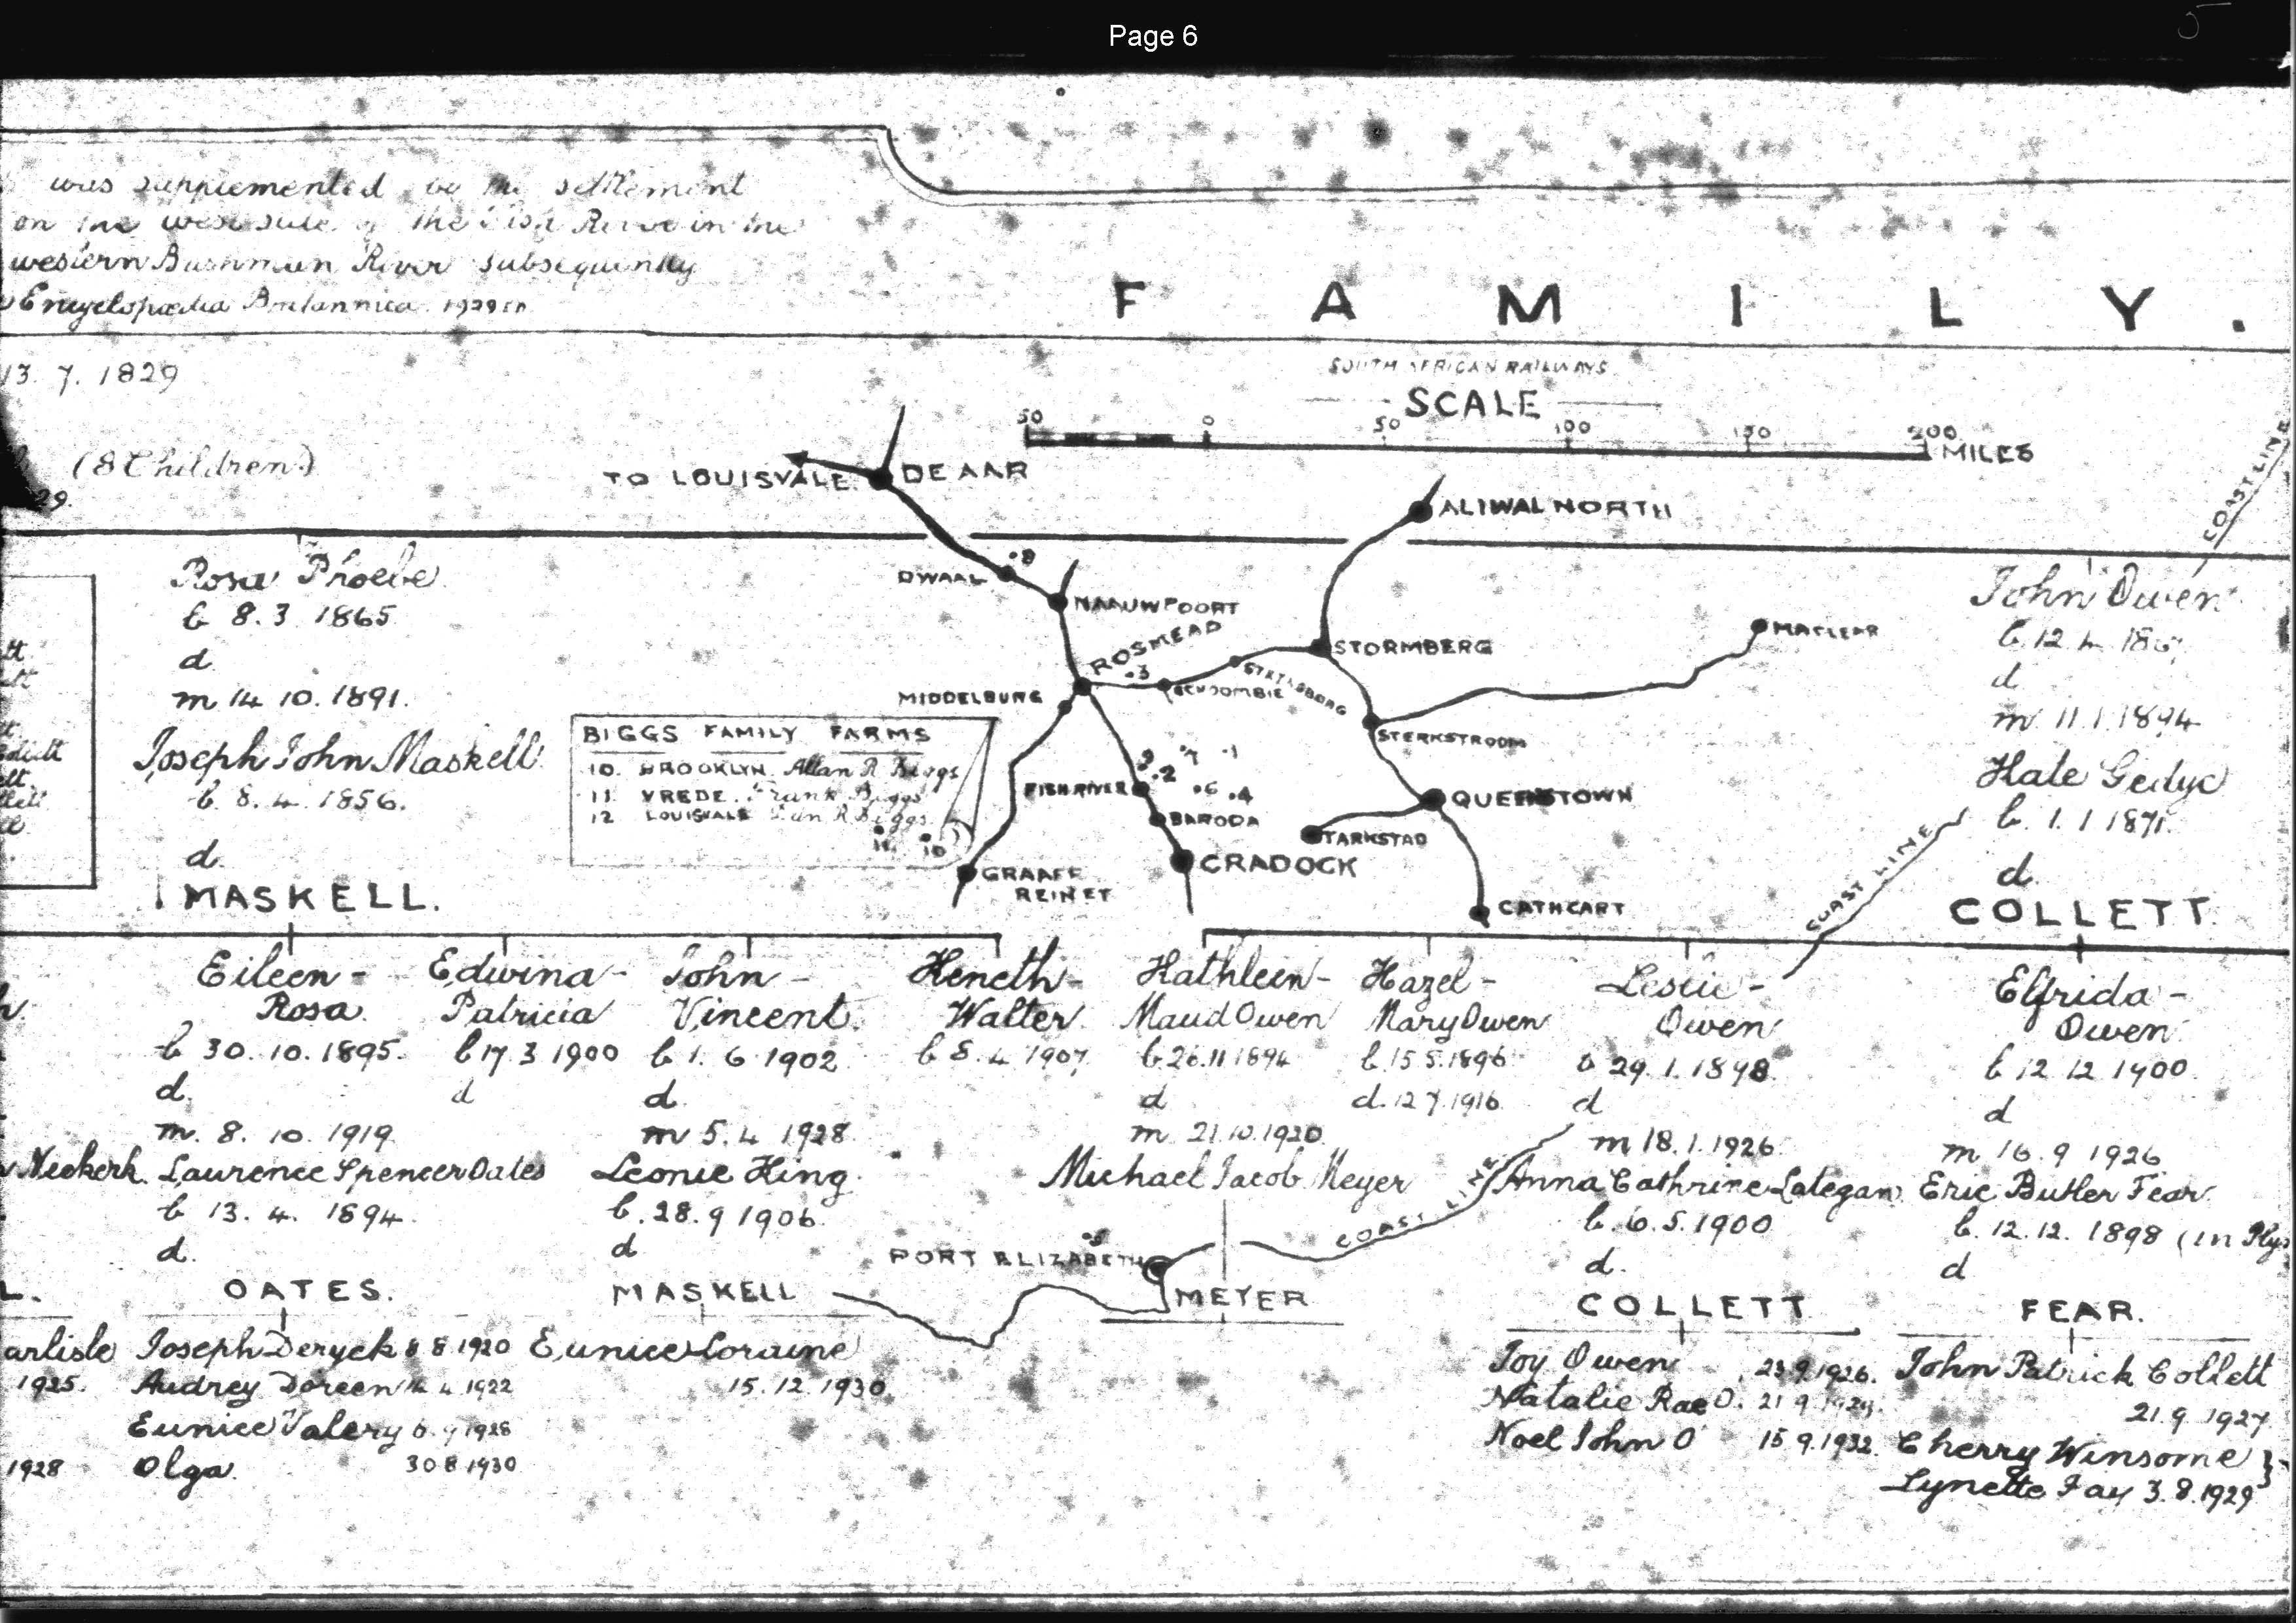 Page 6
5
was supplemented by the settlement
on the west side of the Fish River in the
western Bushman River subsequently
Encyclopædia Britannica. 1929
F A M I L Y.
13. 7. 1829
(8 Children)
29.
SOUTH AFRICAN RAILWAYS
SCALE
50 0 50 100 150 200 MILES
TO LOUISVALE. DE AAR
ALIWAL NORTH
COAST LINE
DWAAL .8
NAAUWPOORT
ROSMEAD
.3
STORMBERG
MACLEAR
MIDDELBURG
SCHOOMBIE
STEYNSBURG
STERKSTROOM
BIGGS FAMILY FARMS
10. BROOKLYN. Allan R Biggs
11 VREDE. Frank Biggs
12 LOUISVALE R Biggs
11 10
9 .7 .1
.2
FISH RIVER .6 .4
BARODA
QUEENSTOWN
TARKSTAD
CRADOCK
GRAAFF REINET
CATHCART
COAST LINE
Rosa Phoebe
b 8. 3. 1865
d
m 14. 10. 1891.
Joseph John Maskell
b. 8. 4. 1856.
d.
MASKELL.
John Owen
b 12 4
d
m 11. 1. 1894
Kate Gedye
b. 1. 1 1871.
d.
COLLETT.
Eileen - Rosa.
b 30. 10. 1895.
d.
m. 8. 10. 1919.
Laurence Spencer Oates
b 13. 4. 1894.
d.
OATES.
Joseph Deryck 8 8 1920
Audrey Doreen 14 4 1922
Eunice Valery 6. 9 1928
Olga. 30 8 1930
Edwina - Patricia
b 17. 3 1900
d
John - Vincent.
b 1. 6 1902
d.
m 5. 4 1928.
Leonie King.
b. 28. 9 1906.
d
MASKELL
Eunice Loraine
15. 12. 1930.
Keneth - Walter.
b 8. 4 1907.
Kathleen - Maud Owen
b 26. 11 1894
d
m 21. 10. 1920.
Michael Jacob Meyer
MEYER
PORT ELIZABETH
.5
COAST LINE
Hazel - Mary Owen
b. 15 5. 1896
d. 12 7. 1916.
Leslie - Owen
b 29. 1. 1898.
d
m 18. 1. 1926.
Anna Cathrine Lategan
b. 6. 5. 1900
d.
COLLETT
Joy Owen 23. 9. 1926.
Natalie Rae O. 21 9
Noel John O 15 9. 1932.
Elfrida - Owen
b 12 12 1900.
d
m 16. 9 1926
Eric Butler Fear.
b. 12. 12. 1898 (in
d
FEAR.
John Patrick Collett
21. 9. 1927.
Cherry Winsome }
Lynette Fay 3. 8. 1929
Neekerk.
L.
arlisle
1925.
1928